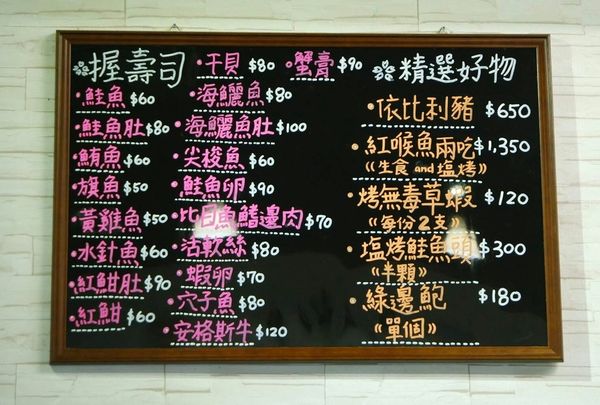 握壽司
鮭魚 $60
鮭魚肚 $80
鮪魚 $60
旗魚 $50
黃雞魚 $50
水針魚 $60
紅魽肚 $90
紅魽 $60
干貝 $80
海鱺魚 $80
海鱺魚肚 $100
尖梭魚 $60
鮭魚卵 $90
比目魚鰭邊肉 $70
活軟絲 $80
蝦卵 $70
穴子魚 $80
安格斯牛 $120
蟹膏 $90
精選好物
依比利豬 $650
紅喉魚兩吃 $1,350
《生食 and 塩烤》
烤無毒草蝦 $120
《每份2支》
塩烤鮭魚頭 $300
《半顆》
綠邊鮑 $180
《單個》